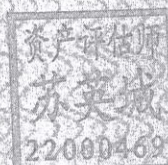 资产评估师
苏英城
22000462